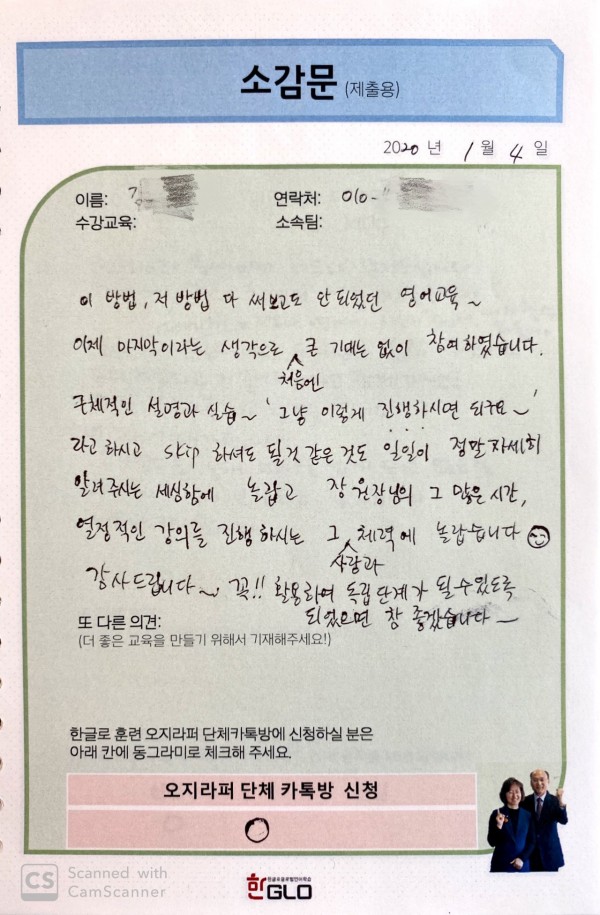 소감문 (제출용)
2020 년 1 월 4 일
이름:
연락처: 010-
수강교육:
소속팀:
이 방법, 저 방법 다 써보고도 안 되었던 영어교육~
이제 마지막이라는 생각으로 처음엔 큰 기대는 없이 참여하였습니다.
구체적인 설명과 실습~ '그냥 이렇게 진행하시면 되구요~'
라고 하시고 skip 하셔도 될것 같은 것도 일일이 정말 자세히
알려주시는 세심함에 놀랍고 장원장님의 그 많은 시간,
열정적인 강의를 진행하시는 그 사랑과 체력에 놀랍습니다
감사드립니다~ 꼭!! 활용하여 독립단계가 될 수 있도록
되었으면 참 좋겠습니다~
또 다른 의견:
(더 좋은 교육을 만들기 위해서 기재해주세요!)
한글로 훈련 오지라퍼 단체카톡방에 신청하실 분은
아래 칸에 동그라미로 체크해 주세요.
오지라퍼 단체 카톡방 신청
한GLO
CS Scanned with
CamScanner